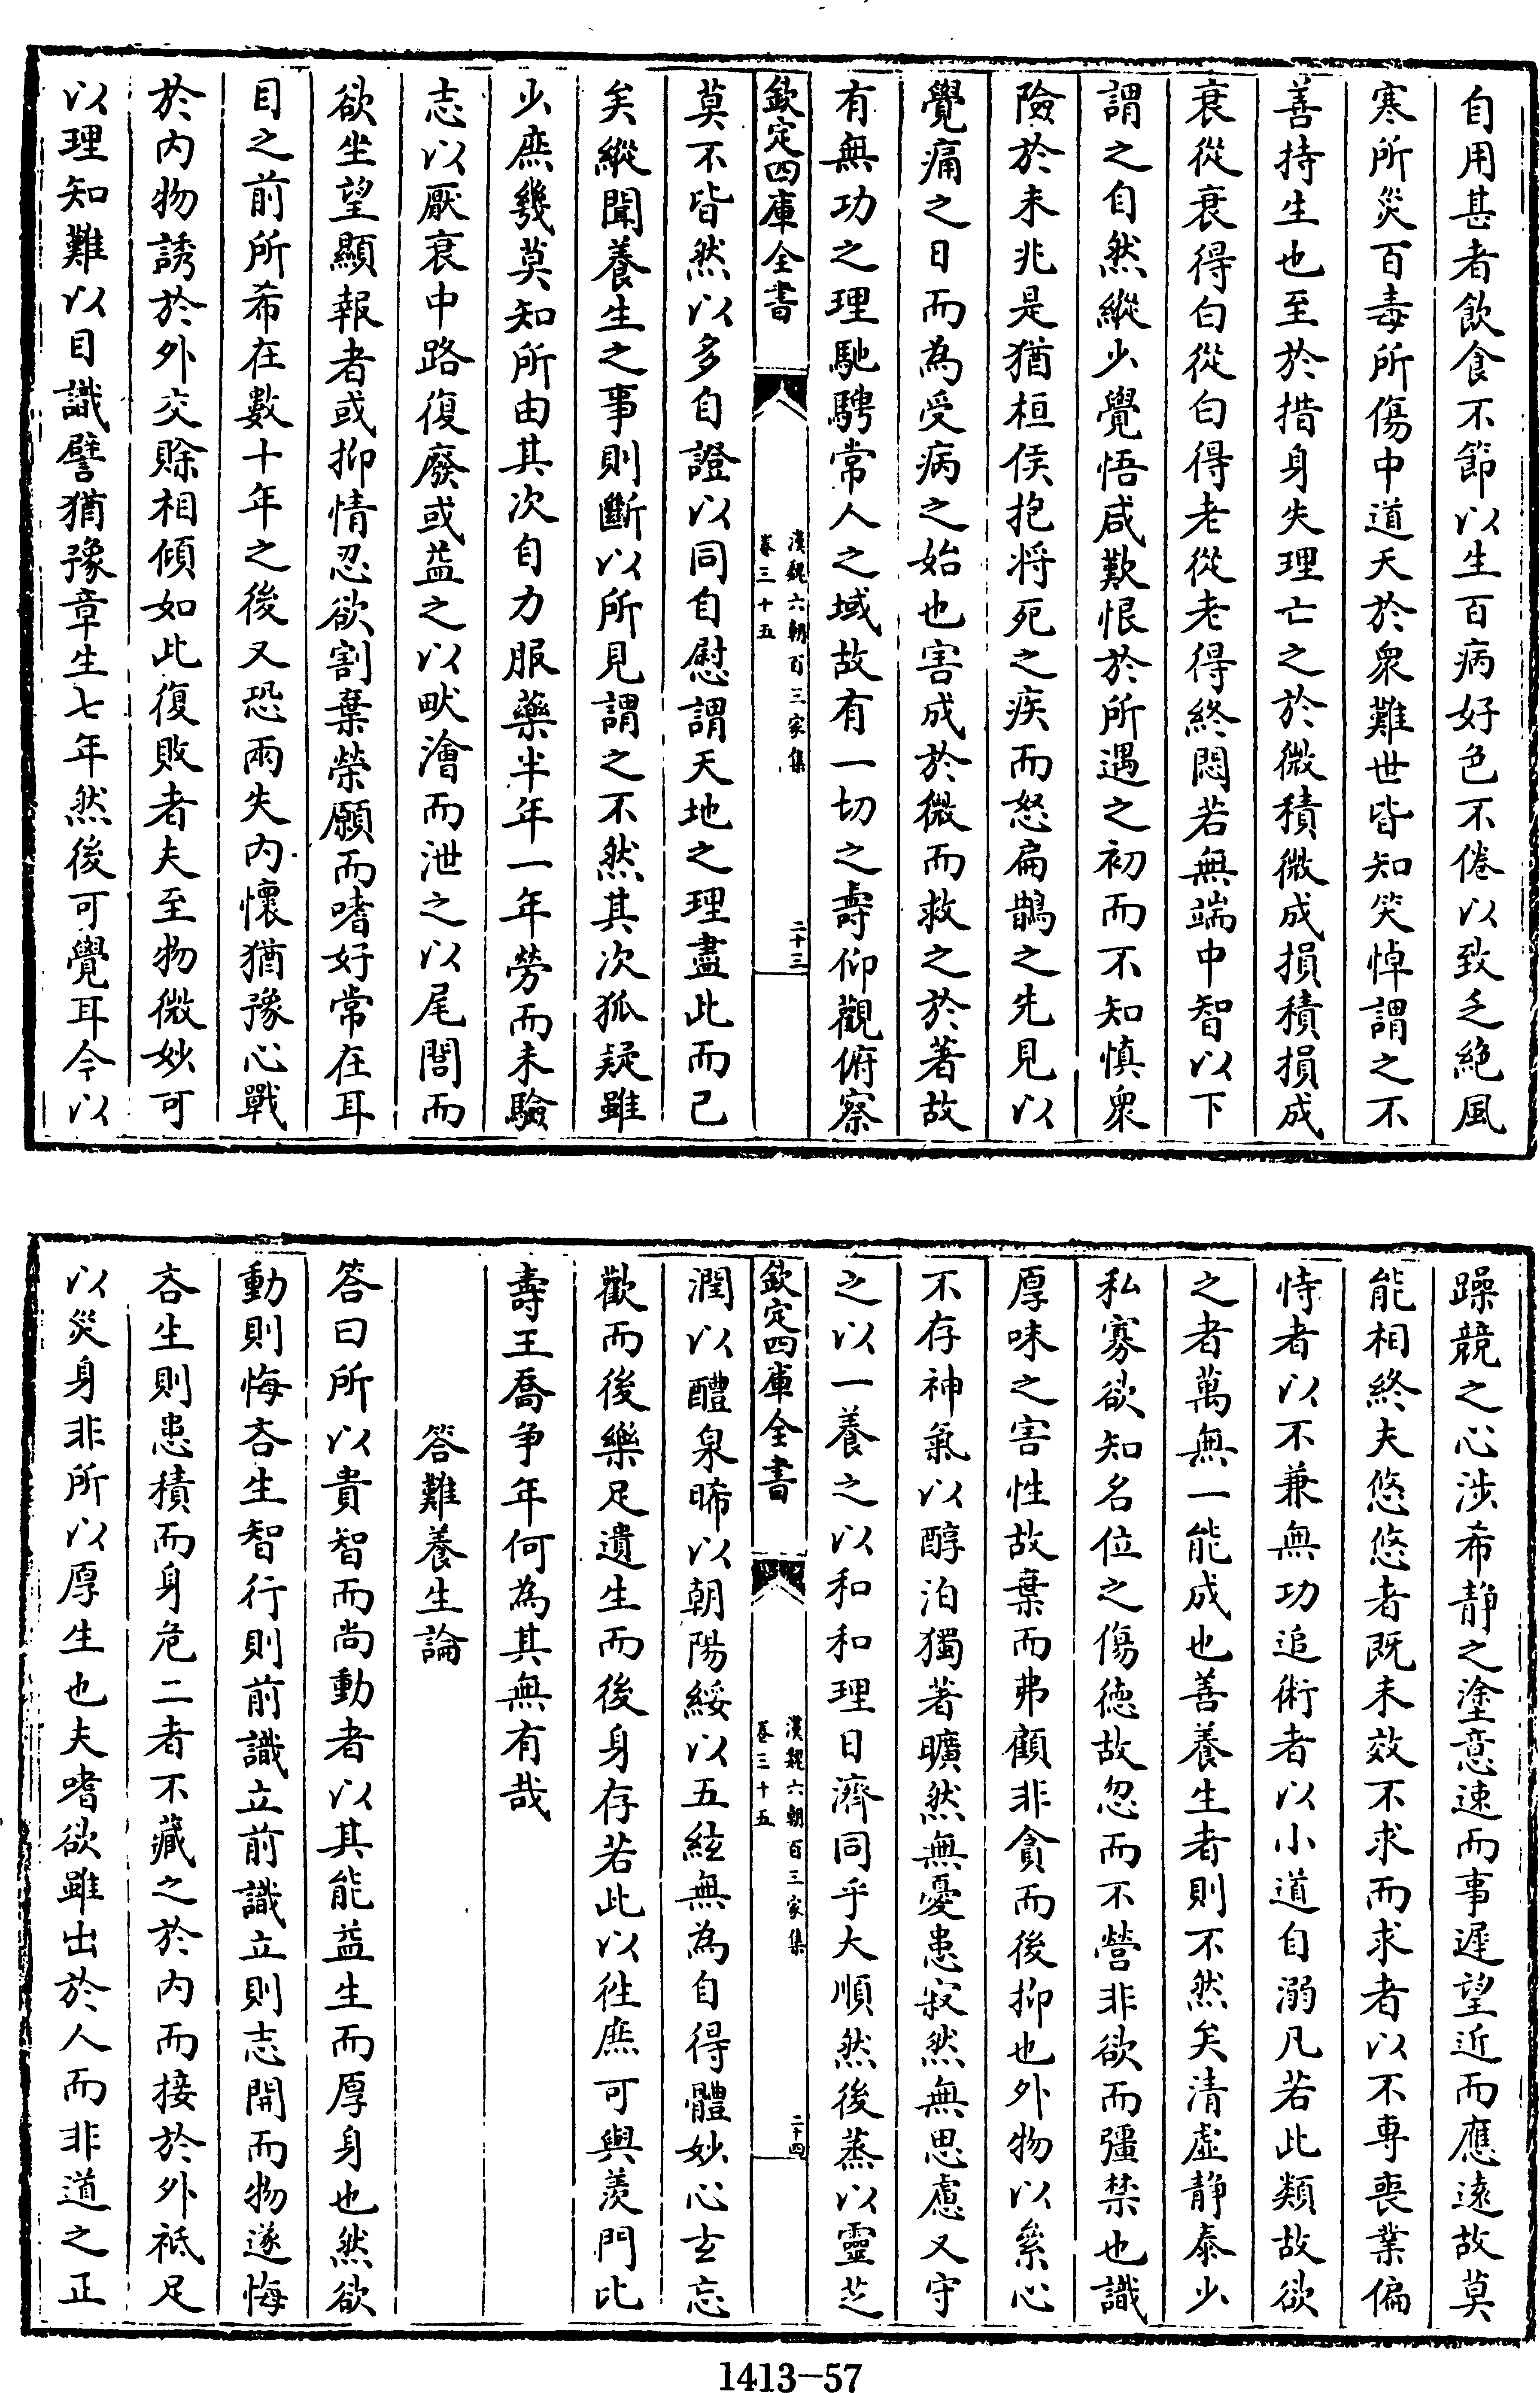 自用甚者飲食不節以生百病好色不倦以致乏絶風
寒所災百毒所傷中道夭於衆難世皆知笑悼謂之不
善持生也至於措身失理亡之於微積微成損積損成
衰從衰得白從白得老從老得終悶若無端中智以下
謂之自然縱少覺悟咸歎恨於所遇之初而不知慎衆
險於未兆是猶桓侯抱將死之疾而怒扁鵲之先見以
覺痛之日而為受病之始也害成於微而救之於著故
有無功之理馳騁常人之域故有一切之壽仰觀俯察
欽定四庫全書
漢魏六朝百三家集
卷三十五
二十三
莫不皆然以多自證以同自慰謂天地之理盡此而已
矣縱聞養生之事則斷以所見謂之不然其次狐疑雖
少庶幾莫知所由其次自力服藥半年一年勞而未驗
志以厭衰中路復廢或益之以畎澮而泄之以尾閭而
欲坐望顯報者或抑情忍欲割棄榮願而嗜好常在耳
目之前所希在數十年之後又恐兩失內懷猶豫心戰
於內物誘於外交賒相傾如此復敗者夫至物微妙可
以理知難以目識譬猶豫章生七年然後可覺耳今以
躁競之心涉希靜之塗意速而事遲望近而應遠故莫
能相終夫悠悠者既未效不求而求者以不專喪業偏
恃者以不兼無功追術者以小道自溺凡若此類故欲
之者萬無一能成也善養生者則不然矣清虛靜泰少
私寡欲知名位之傷德故忽而不營非欲而彊禁也識
厚味之害性故棄而弗顧非貪而後抑也外物以累心
不存神氣以醇泊獨著曠然無憂患寂然無思慮又守
之以一養之以和和理日濟同乎大順然後蒸以靈芝
欽定四庫全書
漢魏六朝百三家集
卷三十五
二十四
潤以醴泉晞以朝陽綏以五絃無為自得體妙心玄忘
歡而後樂足遺生而後身存若此以徃庶可與羨門比
壽王喬爭年何為其無有哉
答難養生論
答曰所以貴智而尚動者以其能益生而厚身也然欲
動則悔吝生智行則前識立前識立則志開而物遂悔
吝生則患積而身危二者不藏之於內而接於外祗足
以災身非所以厚生也夫嗜欲雖出於人而非道之正
1413-57